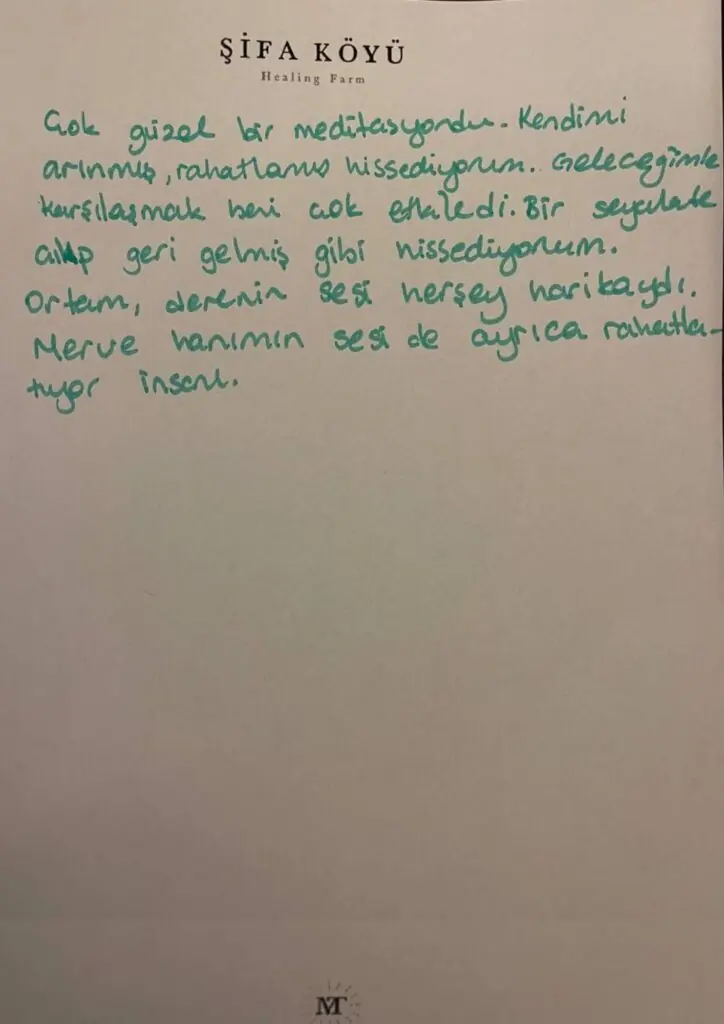 ŞİFA KÖYÜ
Healing Farm
Çok güzel bir meditasyondu. Kendimi
arınmış, rahatlamış hissediyorum. Geleceğimle
karşılaşmak beni çok etkiledi. Bir seyahate
çıkıp geri gelmiş gibi hissediyorum.
Ortam, derenin sesi herşey harikaydı.
Merve hanımın sesi de ayrıca rahatla-
tıyor insanı.
MT